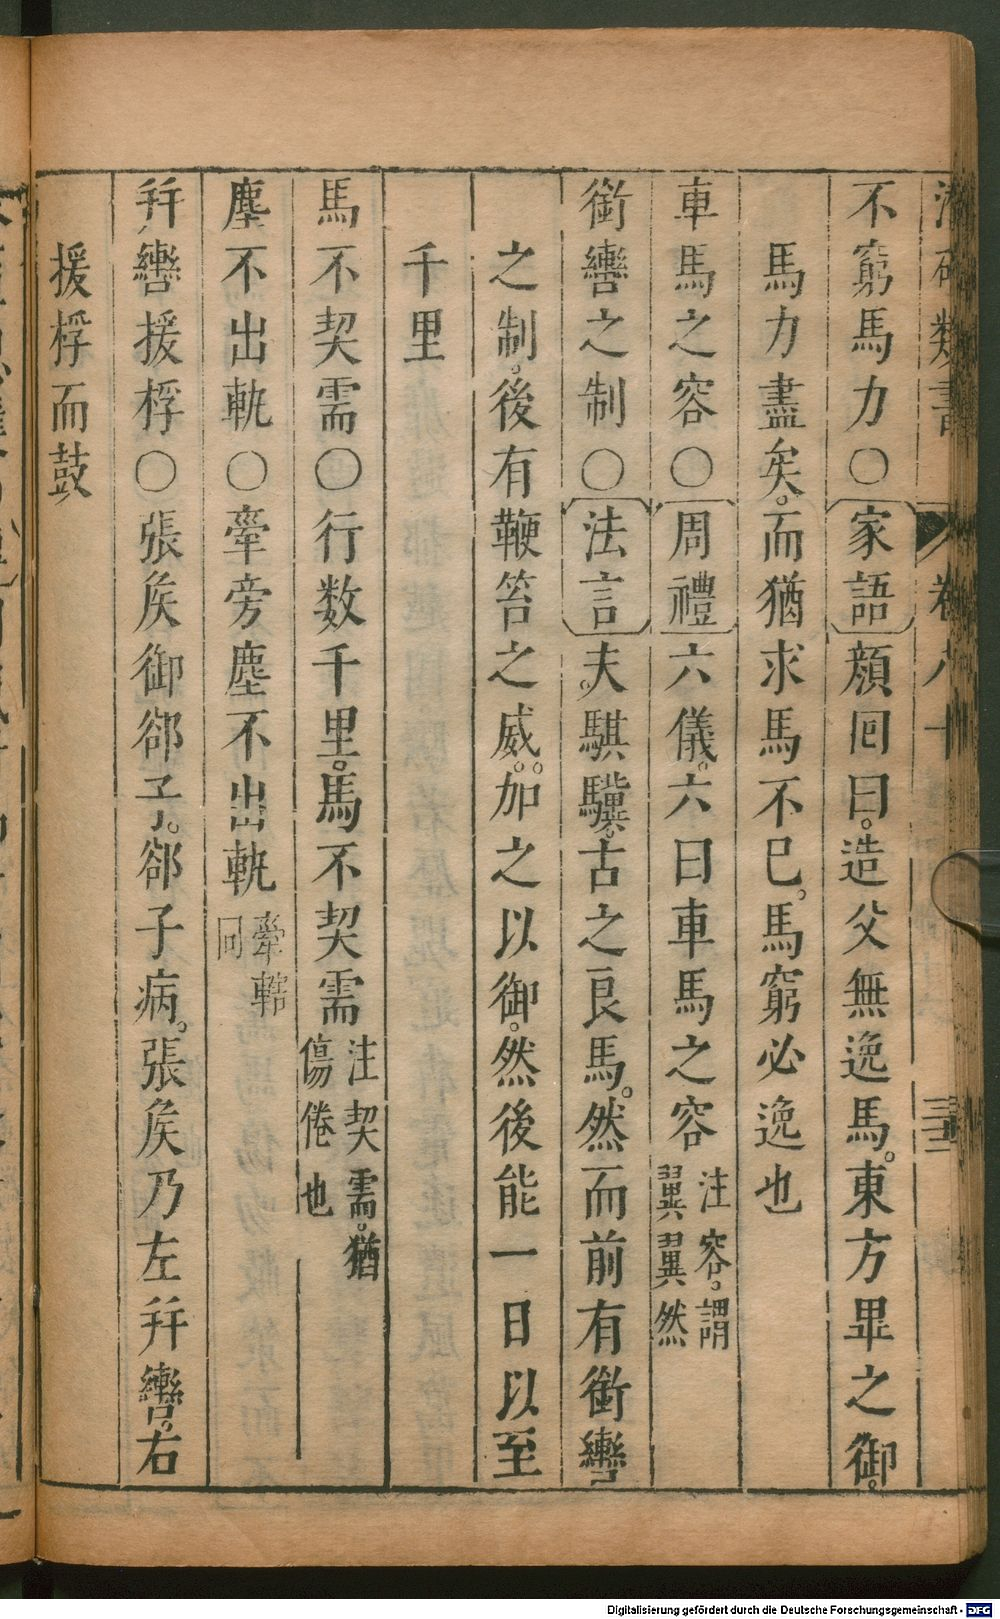 卷八十
三十二
不窮馬力○家語顏囘曰。造父無逸馬。東方畢之御。
馬力盡矣。而猶求馬不已。馬窮必逸也
車馬之容○周禮六儀。六曰車馬之容注容。謂翼翼然
銜轡之制○法言夫。騏驥。古之良馬。然而前有銜轡
之制。後有鞭笞之威。加之以御。然後能一日以至
千里
馬不契需○行数千里。馬不契需注契需。猶傷倦也
塵不出軌○牽旁塵不出軌牽轄同
幷轡援桴○張矦御郤子。郤子病。張矦乃左幷轡。右
援桴而鼓
Digitalisierung gefördert durch die Deutsche Forschungsgemeinschaft - DFG